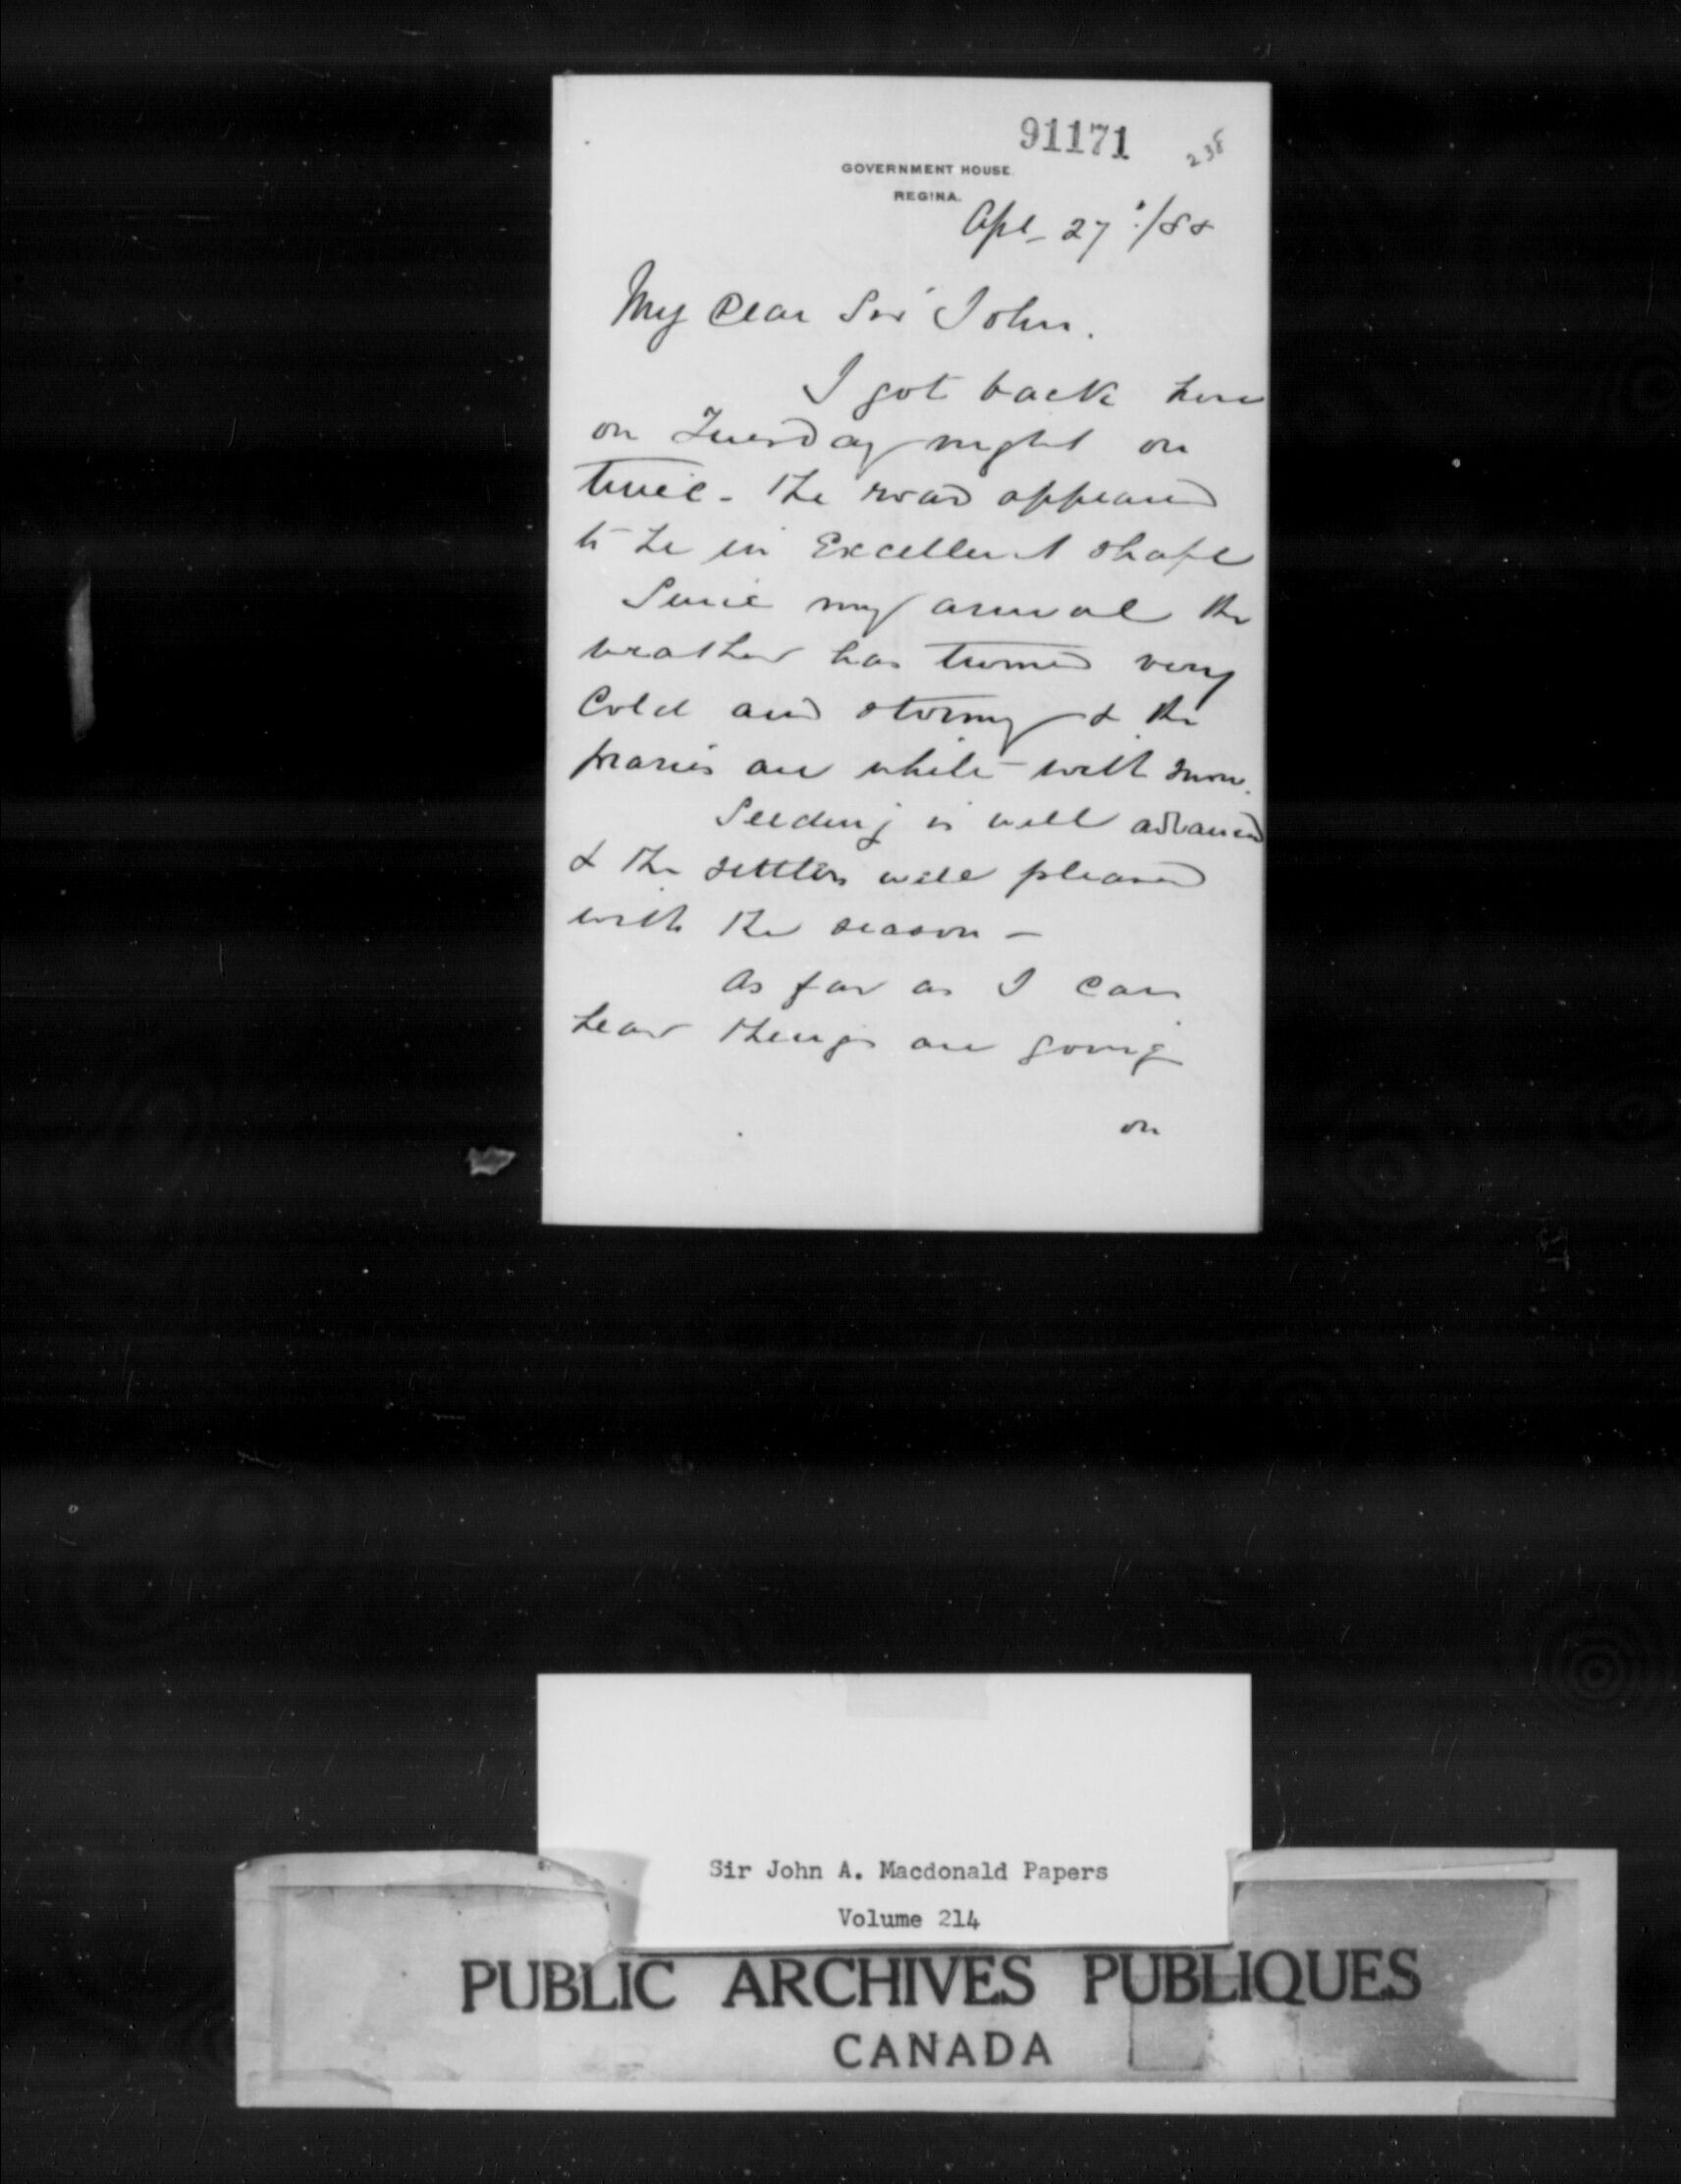 91171
238
GOVERNMENT HOUSE.
REGINA.
Apl_ 27 /88
My Dear Sir John.
I got back here
on Tuesday night on
time - The road appeared
to be in Excellent shape
Since my arrival the
weather has turned very
Cold and stormy & the
prairies are white with snow.
Seeding is well advanced
& the settlers well pleased
with the season -
As far as I can
hear things are going
on
Sir John A. Macdonald Papers
Volume 214
PUBLIC ARCHIVES PUBLIQUES
CANADA